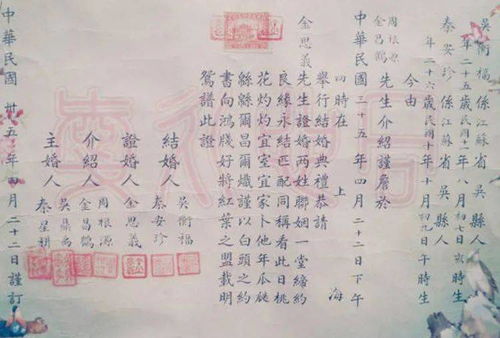 吳衡福 係江蘇省 吳縣人
年二十五歲民國十一年八月初七
秦安珍 係江蘇省 吳縣人
年二十六歲民國十年十月初九日午時生
今由
周根源
金昌鶴
先生介紹謹詹於
中華民國三十五年四月二十二日下午
四時在 上海
舉行結婚典禮恭請
金思義
先生證婚兩姓聯姻一堂締約
良緣永結匹配同稱看此日桃
花灼灼宜室宜家卜他年瓜瓞
綿綿爾昌爾熾謹以白頭之約
書向鴻牋好將紅葉之盟載明
鴛譜此證
結婚人 吳衡福
秦安珍
證婚人 金思義
介紹人 周根源
金昌鶴
主婚人
秦星耕
中華民國卅五年四月二十二日謹訂